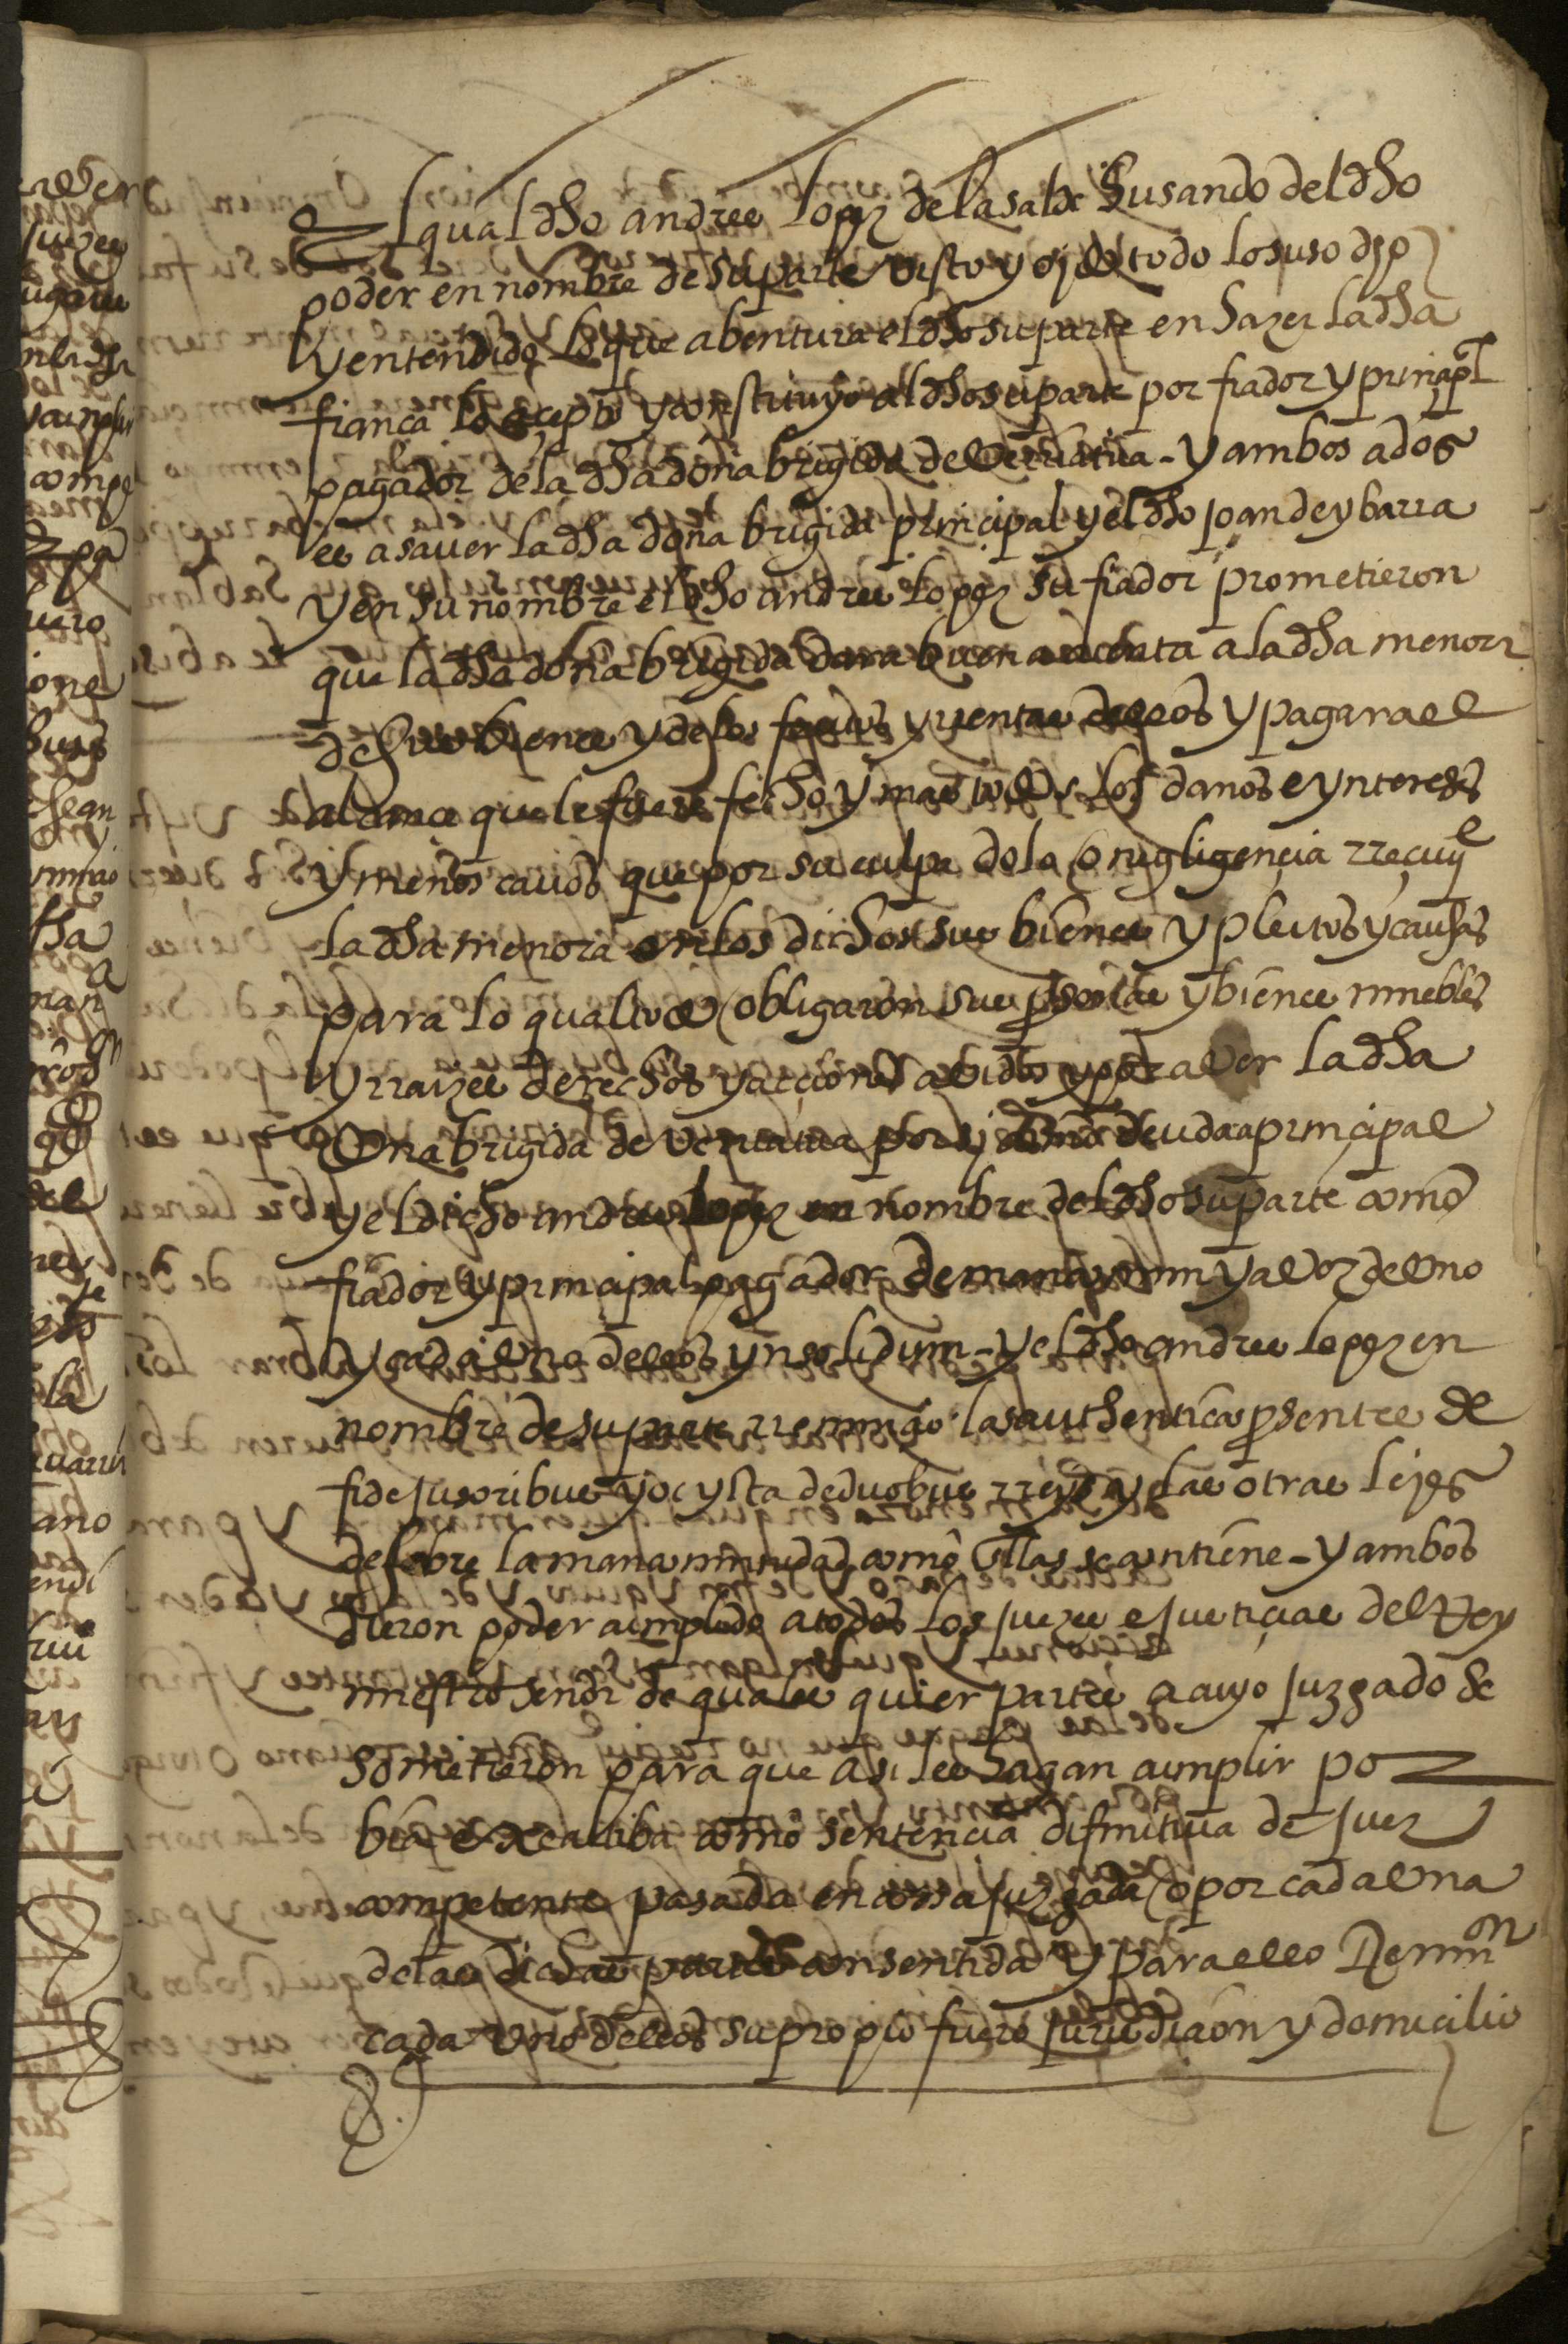 El qual dho andres lopez de la salde husando del dho
poder en nombre de su parte visto y oydo todo lo suso dho
y entendido lo que abentura el dho su parte en hazer la dha
fiança lo açepto y constituyo al dho su parte por fiador y prinçipl
pagador de la dha doña brigida de - y ambos a dos
es a sauer la dha doña brigida prinçipal y el dho joan de ybarra
y en su nombre el dho andres lopez su fiador prometieron
que la dha doña brigida dara buena cuenta a la dha menora
de sus bienes y de los frutos y rrentas dellos y pagara el
alcançe que le fuere fecho y mas todos los daños e yntereses
y menos cauos que por su culpa dolo o nigligençia rreçiuye
la dha menora en los dichos sus bienes y pleitos y causas
para lo qual todo obligaron sus psonas y bienes muebles
y rraizes derechos y acçiones abidos y por aver la dha
doña brigida de por si como deudora prinçipal
y el dicho andres lopez en nombre del dho su parte como
fiador y prinçipal pagador de mancomun y a voz de uno
y cada uno dellos ynsolidum - y el dho andres lopez en
nombre de su parte rrenunçio las authenticas psentes de
fidejusoribus y oc yta de duobus rreys y las otras leyes
de sobre la mancomunidad como en ellas se contiene - y ambos
dieron poder cumplido a todos los juezes e justiçias del Rey
nuestro señor de quales quier partes a cuyo juzgado se
sometieron para que asi les hagan cumplir por
bia executiba como sentençia difinitiua de juez
competente pasada en cossa juzgada o por cada una
de las dichas partes consentida y para ello Renunon
cada uno dellos su propio fuero juridiçion y domicilio